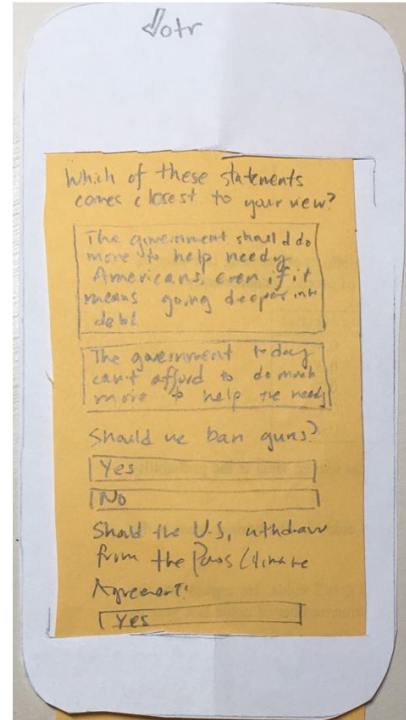 Votr
Which of these statements
comes closest to your view?
The government should do
more to help needy
Americans, even if it
means going deeper into
debt
The government today
can't afford to do much
more to help the needy
Should we ban guns?
Yes
No
Should the U.S. withdraw
from the Paris Climate
Agreement?
Yes